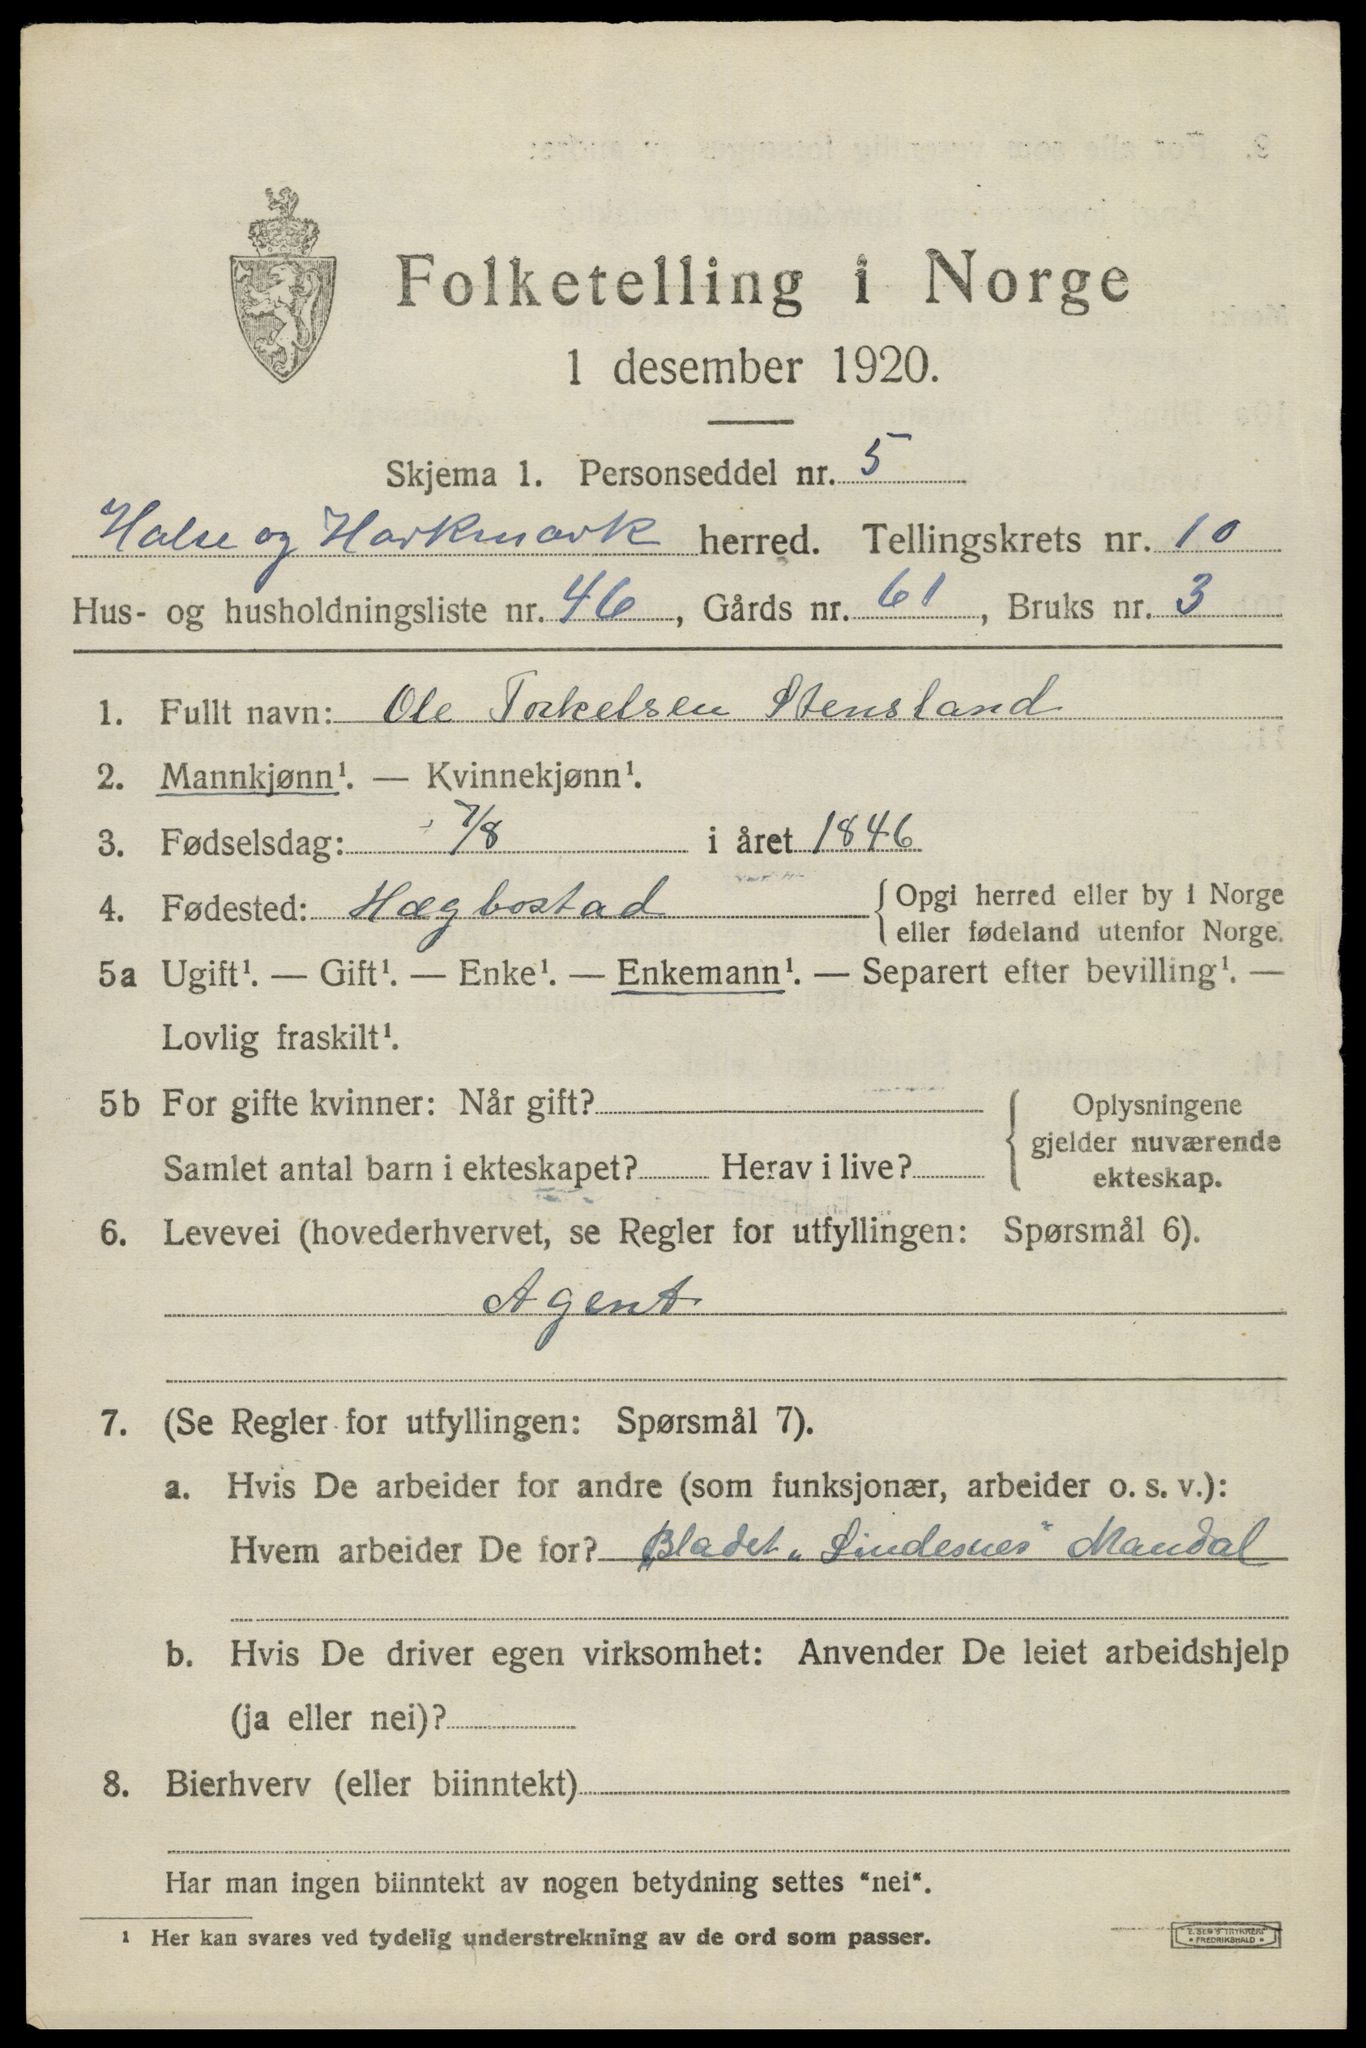 Folketelling i Norge
1 desember 1920.
Skjema 1. Personseddel nr. 5
Halse og Harkmark herred. Tellingskrets nr. 10
Hus- og husholdningsliste nr. 46, Gårds nr. 61, Bruks nr. 3
1. Fullt navn: Ole Torkelsen Stensland
2. Mannkjønn¹. — Kvinnekjønn¹.
3. Fødselsdag: 7/8 i året 1846
4. Fødested: Hægbostad { Opgi herred eller by i Norge
eller fødeland utenfor Norge.
5a Ugift¹. — Gift¹. — Enke¹. — Enkemann¹. — Separert efter bevilling¹. —
Lovlig fraskilt¹.
5b For gifte kvinner: Når gift?
Samlet antal barn i ekteskapet? Herav i live?
Oplysningene
gjelder nuværende
ekteskap.
6. Levevei (hovederhvervet, se Regler for utfyllingen: Spørsmål 6).
Agent
7. (Se Regler for utfyllingen: Spørsmål 7).
a. Hvis De arbeider for andre (som funksjonær, arbeider o. s. v.):
Hvem arbeider De for? Bladet „Lindesnes" Mandal
b. Hvis De driver egen virksomhet: Anvender De leiet arbeidshjelp
(ja eller nei)?
8. Bierhverv (eller biinntekt)
Har man ingen biinntekt av nogen betydning settes "nei".
¹ Her kan svares ved tydelig understrekning av de ord som passer.
E. SEM'S TRYKKERI
• FREDRIKSHALD •